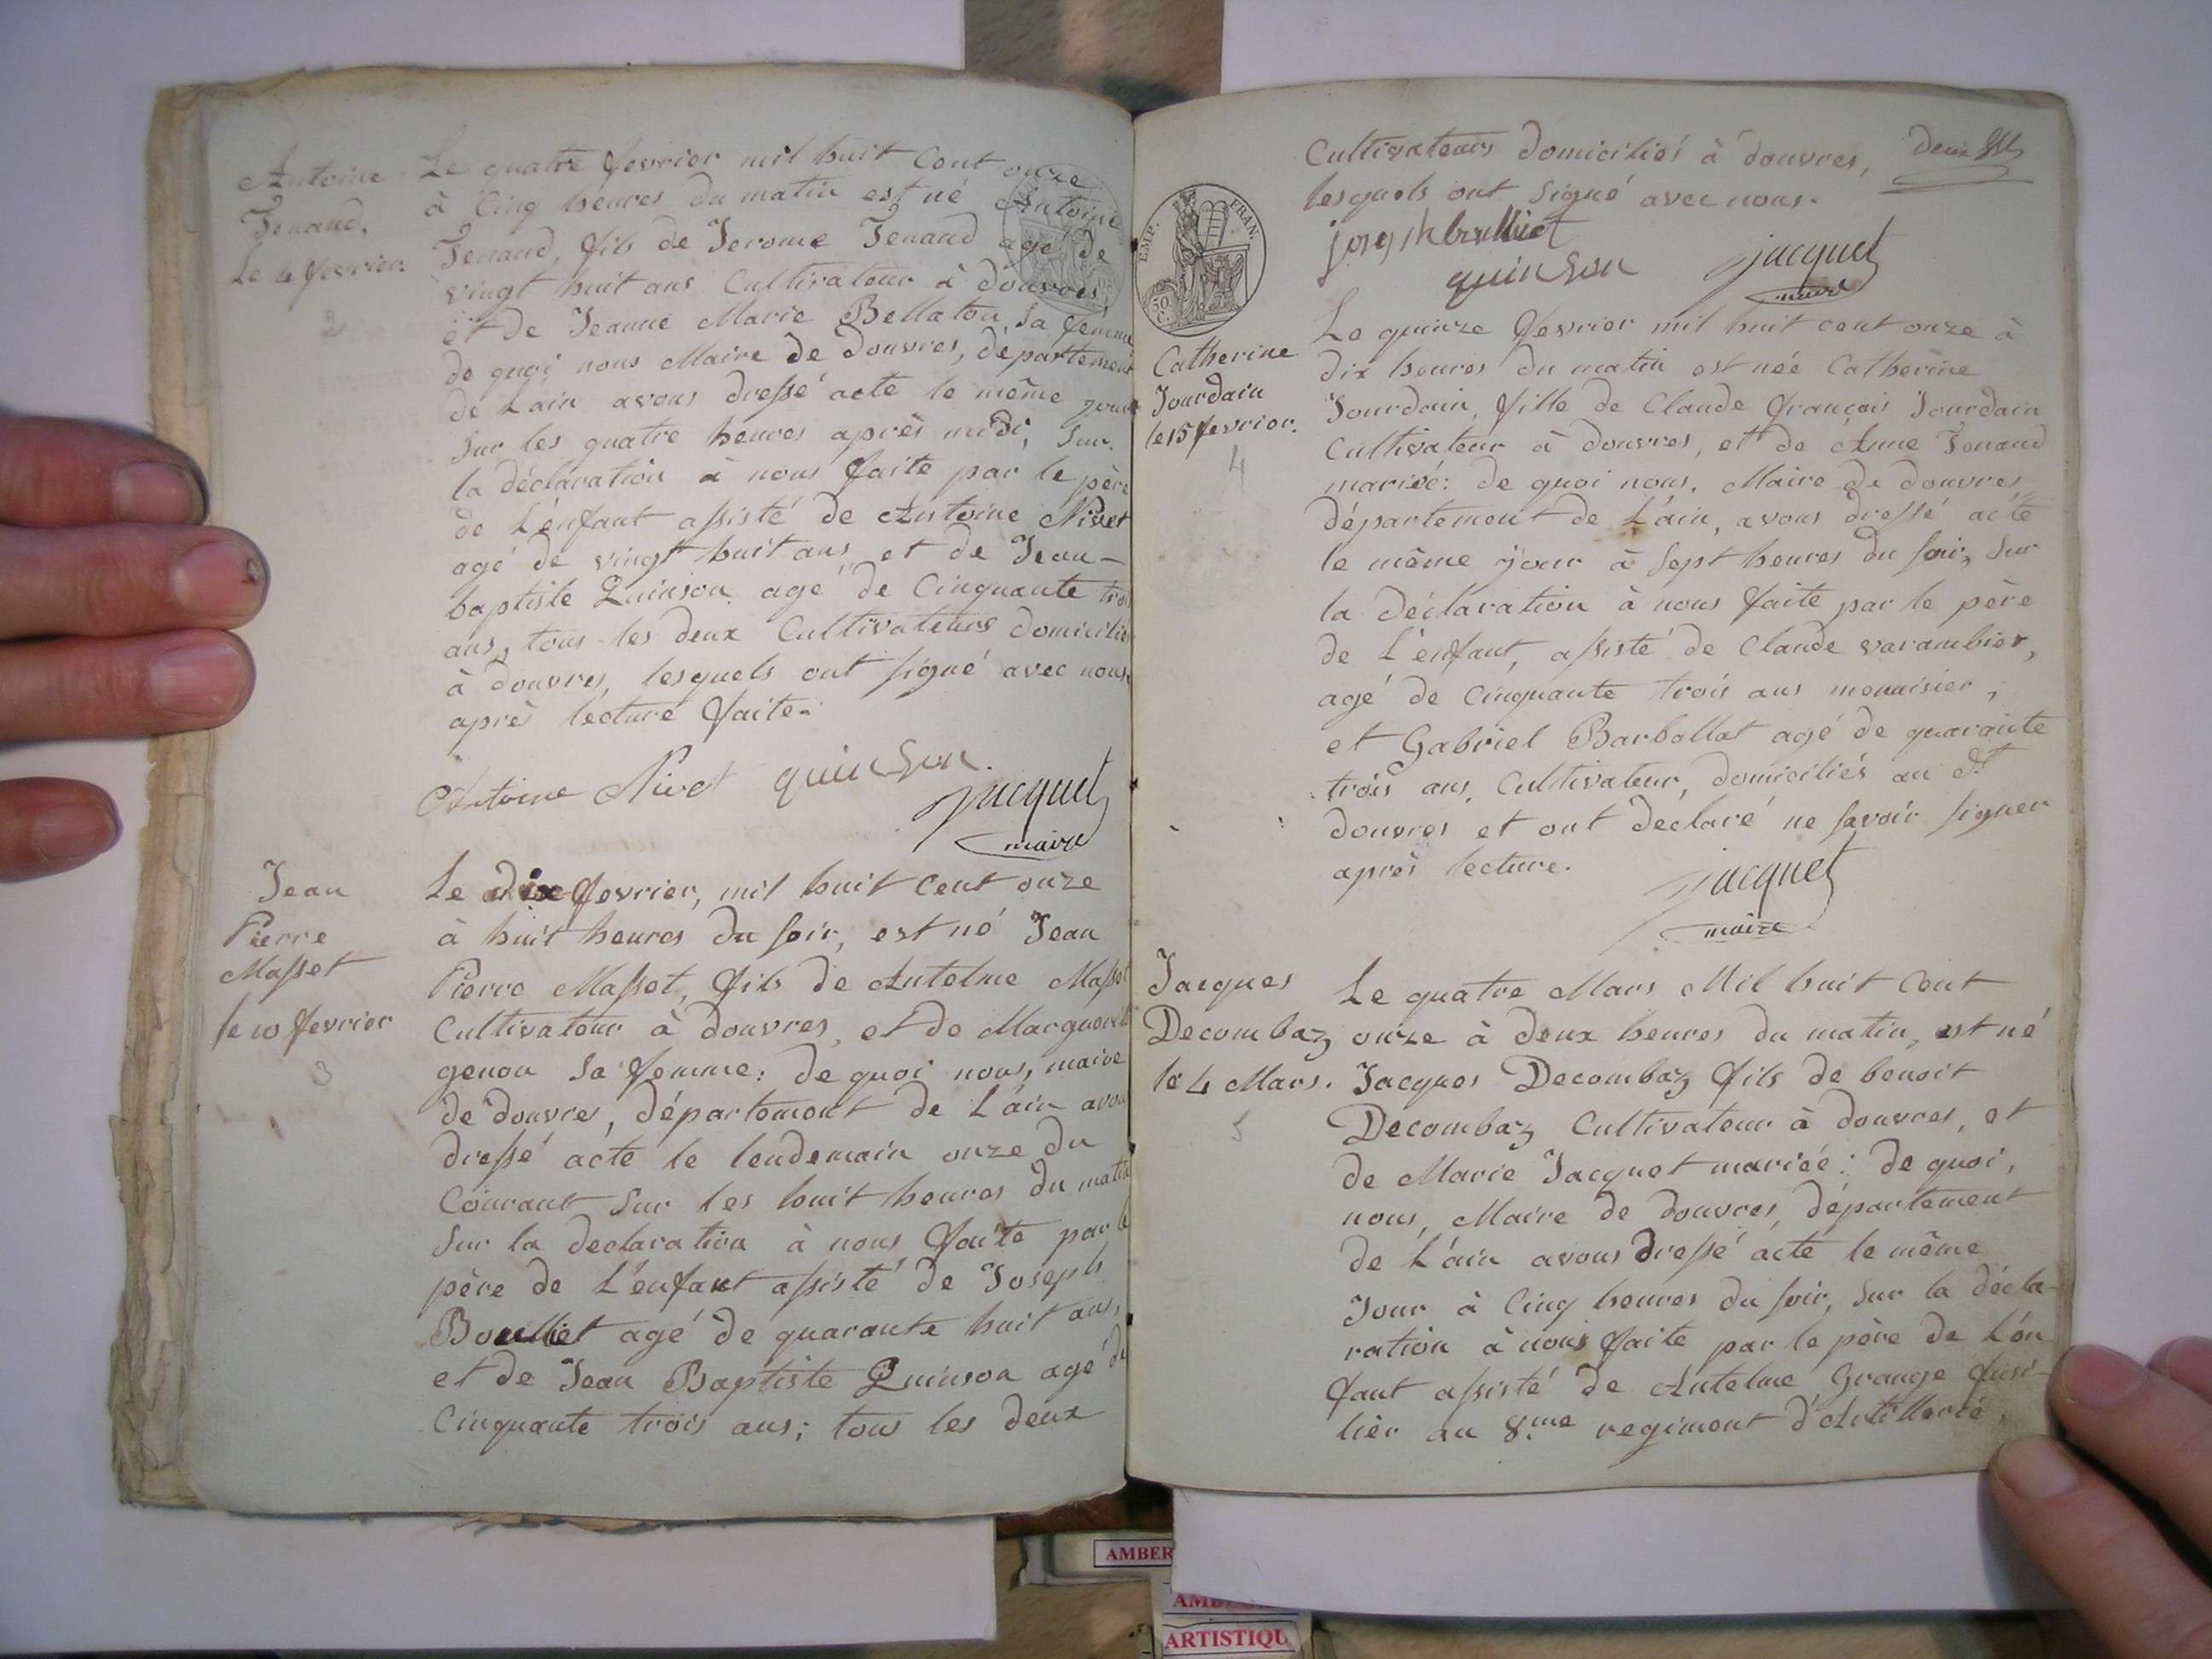 Antoine
Tenand.
Le 4 fevrier.
2
Le quatre fevrier mil huit Cent onze
à Cinq heures du matin est né Antoine
Tenand, fils de Jerome Tenand agé de
vingt huit ans Cultivateur à douvres
et de Jeanne Marie Bellaton sa femme
de quoi nous Maire de douvres, département
de L'ain avons dressé acte le même jour
sur les quatre heures après midi, sur
la déclaration à nous faite par le père
de L'enfant assisté de Antoine Nivet
agé de vingt huit ans et de Jean-
baptiste Quinson agé de Cinquante trois
ans, tous les deux Cultivateurs domicilié
à douvres, lesquels ont signé avec nous
après lecture faite.
Antoine Nivet quinson.
jacquet
maire
Jean
Pierre
Masset
le 10 fevrier
3
Le dix fevrier, mil huit Cent onze
à huit heures du soir, est né Jean
Pierre Masset, fils de Antelme Masset
Cultivateur à douvres, et de Marguerite
genou sa femme: de quoi nous, maire
de douvres, département de L'ain avons
dressé acte le lendemain onze du
Courant sur les huit heures du matin
sur la declaration à nous faite par le
père de L'enfant assisté de Joseph
agé de quarante huit ans,
et de Jean Baptiste Quinson agé de
Cinquante trois ans; tous les deux
Cultivateurs domiciliés à douvres,
lesquels ont signé avec nous.
quinson jacquet
maire
EMP. FRAN.
50 C.
Catherine
Jourdain
le 15 fevrier.
4
Le quinze fevrier mil huit cent onze à
dix heures du matin est née Catherine
Jourdain, fille de Claude françois Jourdain
Cultivateur à douvres, et de Anne Tenand
mariée: de quoi nous, Maire de douvres
département de L'ain, avons dressé acte
le même jour à sept heures du soir, sur
la déclaration à nous faite par le père
de L'enfant, assisté de Claude varambier,
agé de Cinquante trois ans menuisier,
et Gabriel Barbollat agé de quarante
trois ans, Cultivateur, domiciliés au dt
douvres et ont déclaré ne savoir signer
après lecture.
jacquet
maire
Jacques
Decombaz
le 4 Mars.
5
Le quatre Mars Mil huit Cent
onze à deux heures du matin, est né
Jacques Decombaz fils de benoit
Decombaz Cultivateur à douvres, et
de Marie Jacquet mariée: de quoi,
nous, Maire de douvres, département
de L'ain avons dressé acte le même
Jour à Cinq heures du soir, sur la décla-
ration à nous faite par le père de L'en
fant assisté de Antelme Grange fusi-
lier au 8.me regiment d'Artillerie,
AMBER
ARTISTIQU